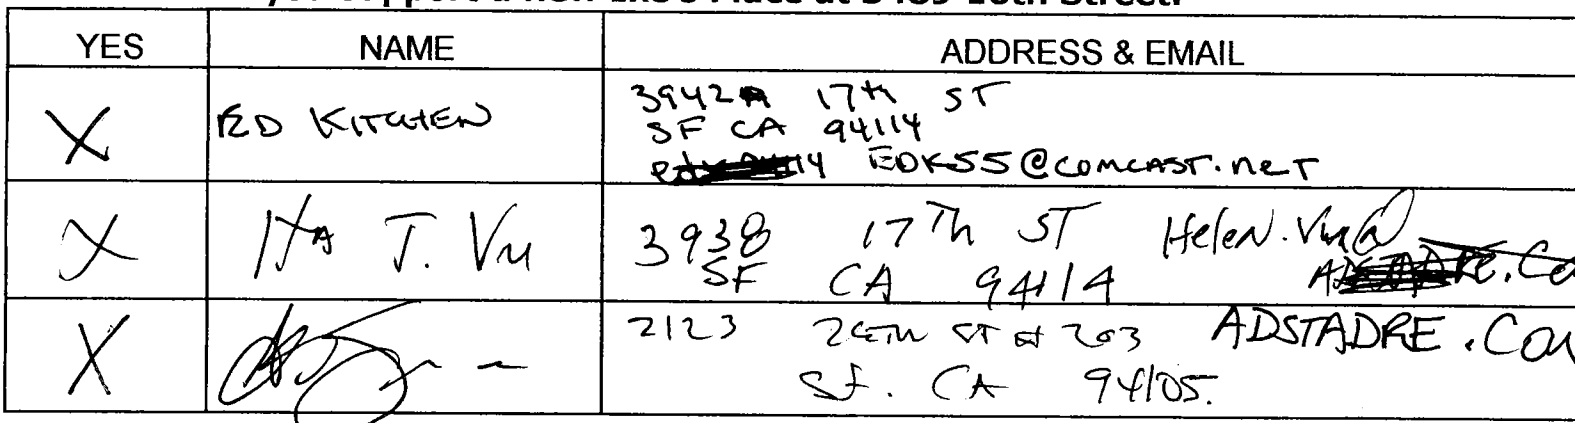 YES NAME ADDRESS & EMAIL
X ED KITCHEN 3942A 17th ST
SF CA 94114
EDK55@comcast.net
X T. Vu 3938 17Th ST Helen.Vu@
SF CA 94114
X 2123 ADSTADRE.Com
SF. CA 94105.